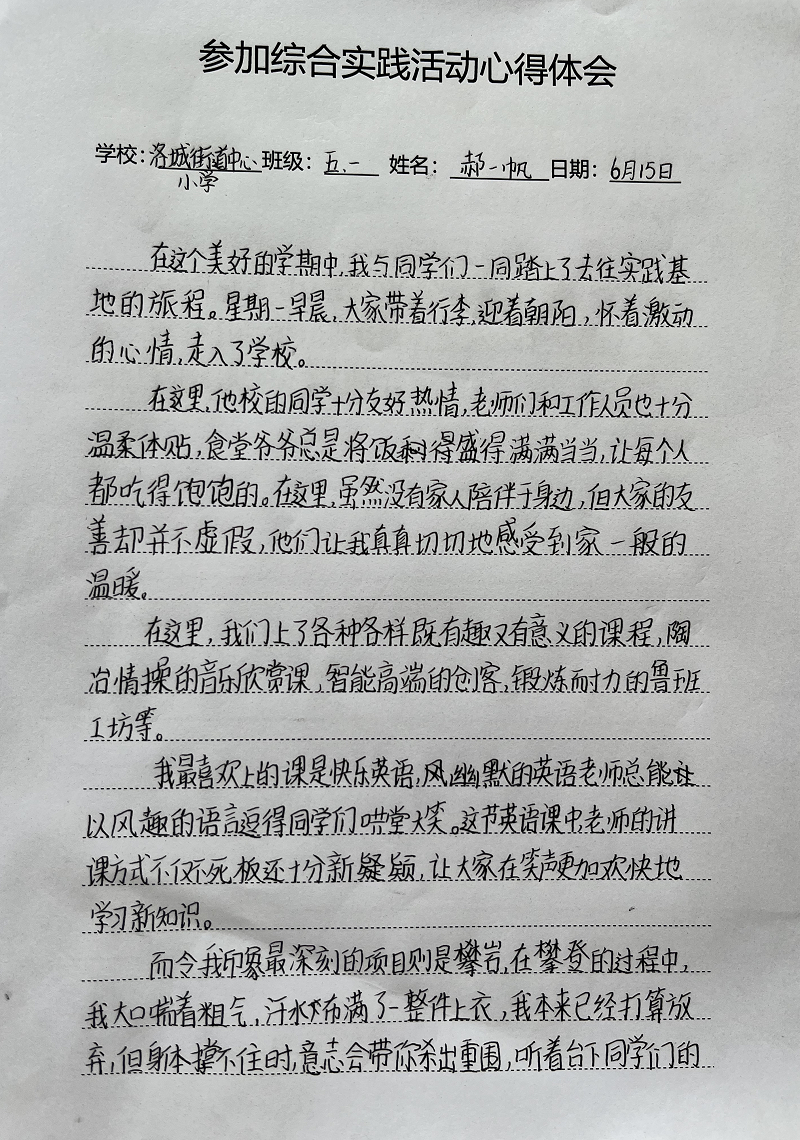 参加综合实践活动心得体会
学校：洛城街道中心小学 班级：五.一 姓名：郝一帆 日期：6月15日
在这个美好的学期中,我与同学们一同踏上了去往实践基
地的旅程。星期一早晨,大家带着行李,迎着朝阳,怀着激动
的心情,走入了学校。
在这里,他校的同学十分友好热情,老师们和工作人员也十分
温柔体贴,食堂爷爷总是将饭剩得盛得满满当当,让每个人
都吃得饱饱的。在这里,虽然没有家人陪伴于身边,但大家的友
善却并不虚假,他们让我真真切切地感受到家一般的
温暖。
在这里,我们上了各种各样既有趣又有意义的课程,陶
冶情操的音乐欣赏课,智能高端的创客,锻炼耐力的鲁班
工坊等。
我最喜欢上的课是快乐英语,风幽默的英语老师总能让
以风趣的语言逗得同学们哄堂大笑。这节英语课中,老师的讲
课方式不仅不死板还十分新疑颖,让大家在笑声更加欢快地
学习新知识。
而令我印象最深刻的项目则是攀岩,在攀登的过程中,
我大口喘着粗气,汗水布满了一整件上衣,我本来已经打算放
弃,但身体撑不住时,意志会带你杀出重围,听着台下同学们的